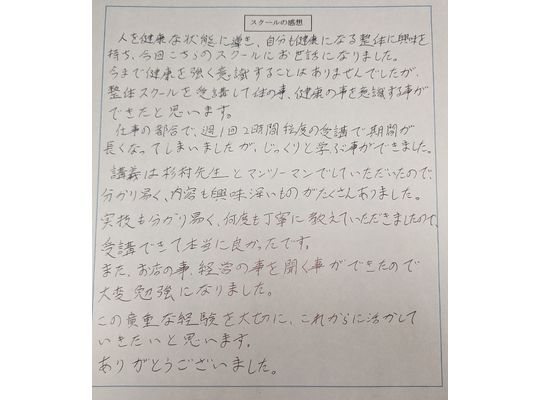 スクールの感想
人を健康な状態に導き、自分も健康になる整体に興味を
持ち、今回こちらのスクールにお世話になりました。
今まで健康を強く意識することはありませんでしたが、
整体スクールを受講して体の事、健康の事を意識する事が
できたと思います。
仕事の都合で、週1回2時間程度の受講で期間が
長くなってしまいましたが、じっくりと学ぶ事ができました。
講義は杉村先生とマンツーマンでしていただいたので
分かり易く、内容も興味深いものがたくさんありました。
実技も分かり易く、何度も丁寧に教えていただきましたので、
受講できて本当に良かったです。
また、お店の事、経営の事を聞く事ができたので
大変勉強になりました。
この貴重な経験を大切に、これからに活かして
いきたいと思います。
ありがとうございました。